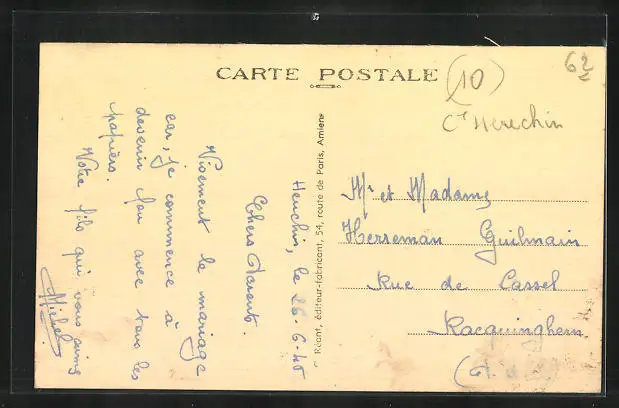 CARTE POSTALE
(10)
62
Ct Heuchin
Réant, éditeur-fabricant, 54, route de Paris, Amiens
Heuchin, le 26-6-40
Chers Parents
Vivement le mariage
car, je commence à
devenir fou avec tous les
papiers.
Votre fils qui vous aime
Michel
Mr et Madame
Herreman Guilmain
Rue de Cassel
Racquinghem